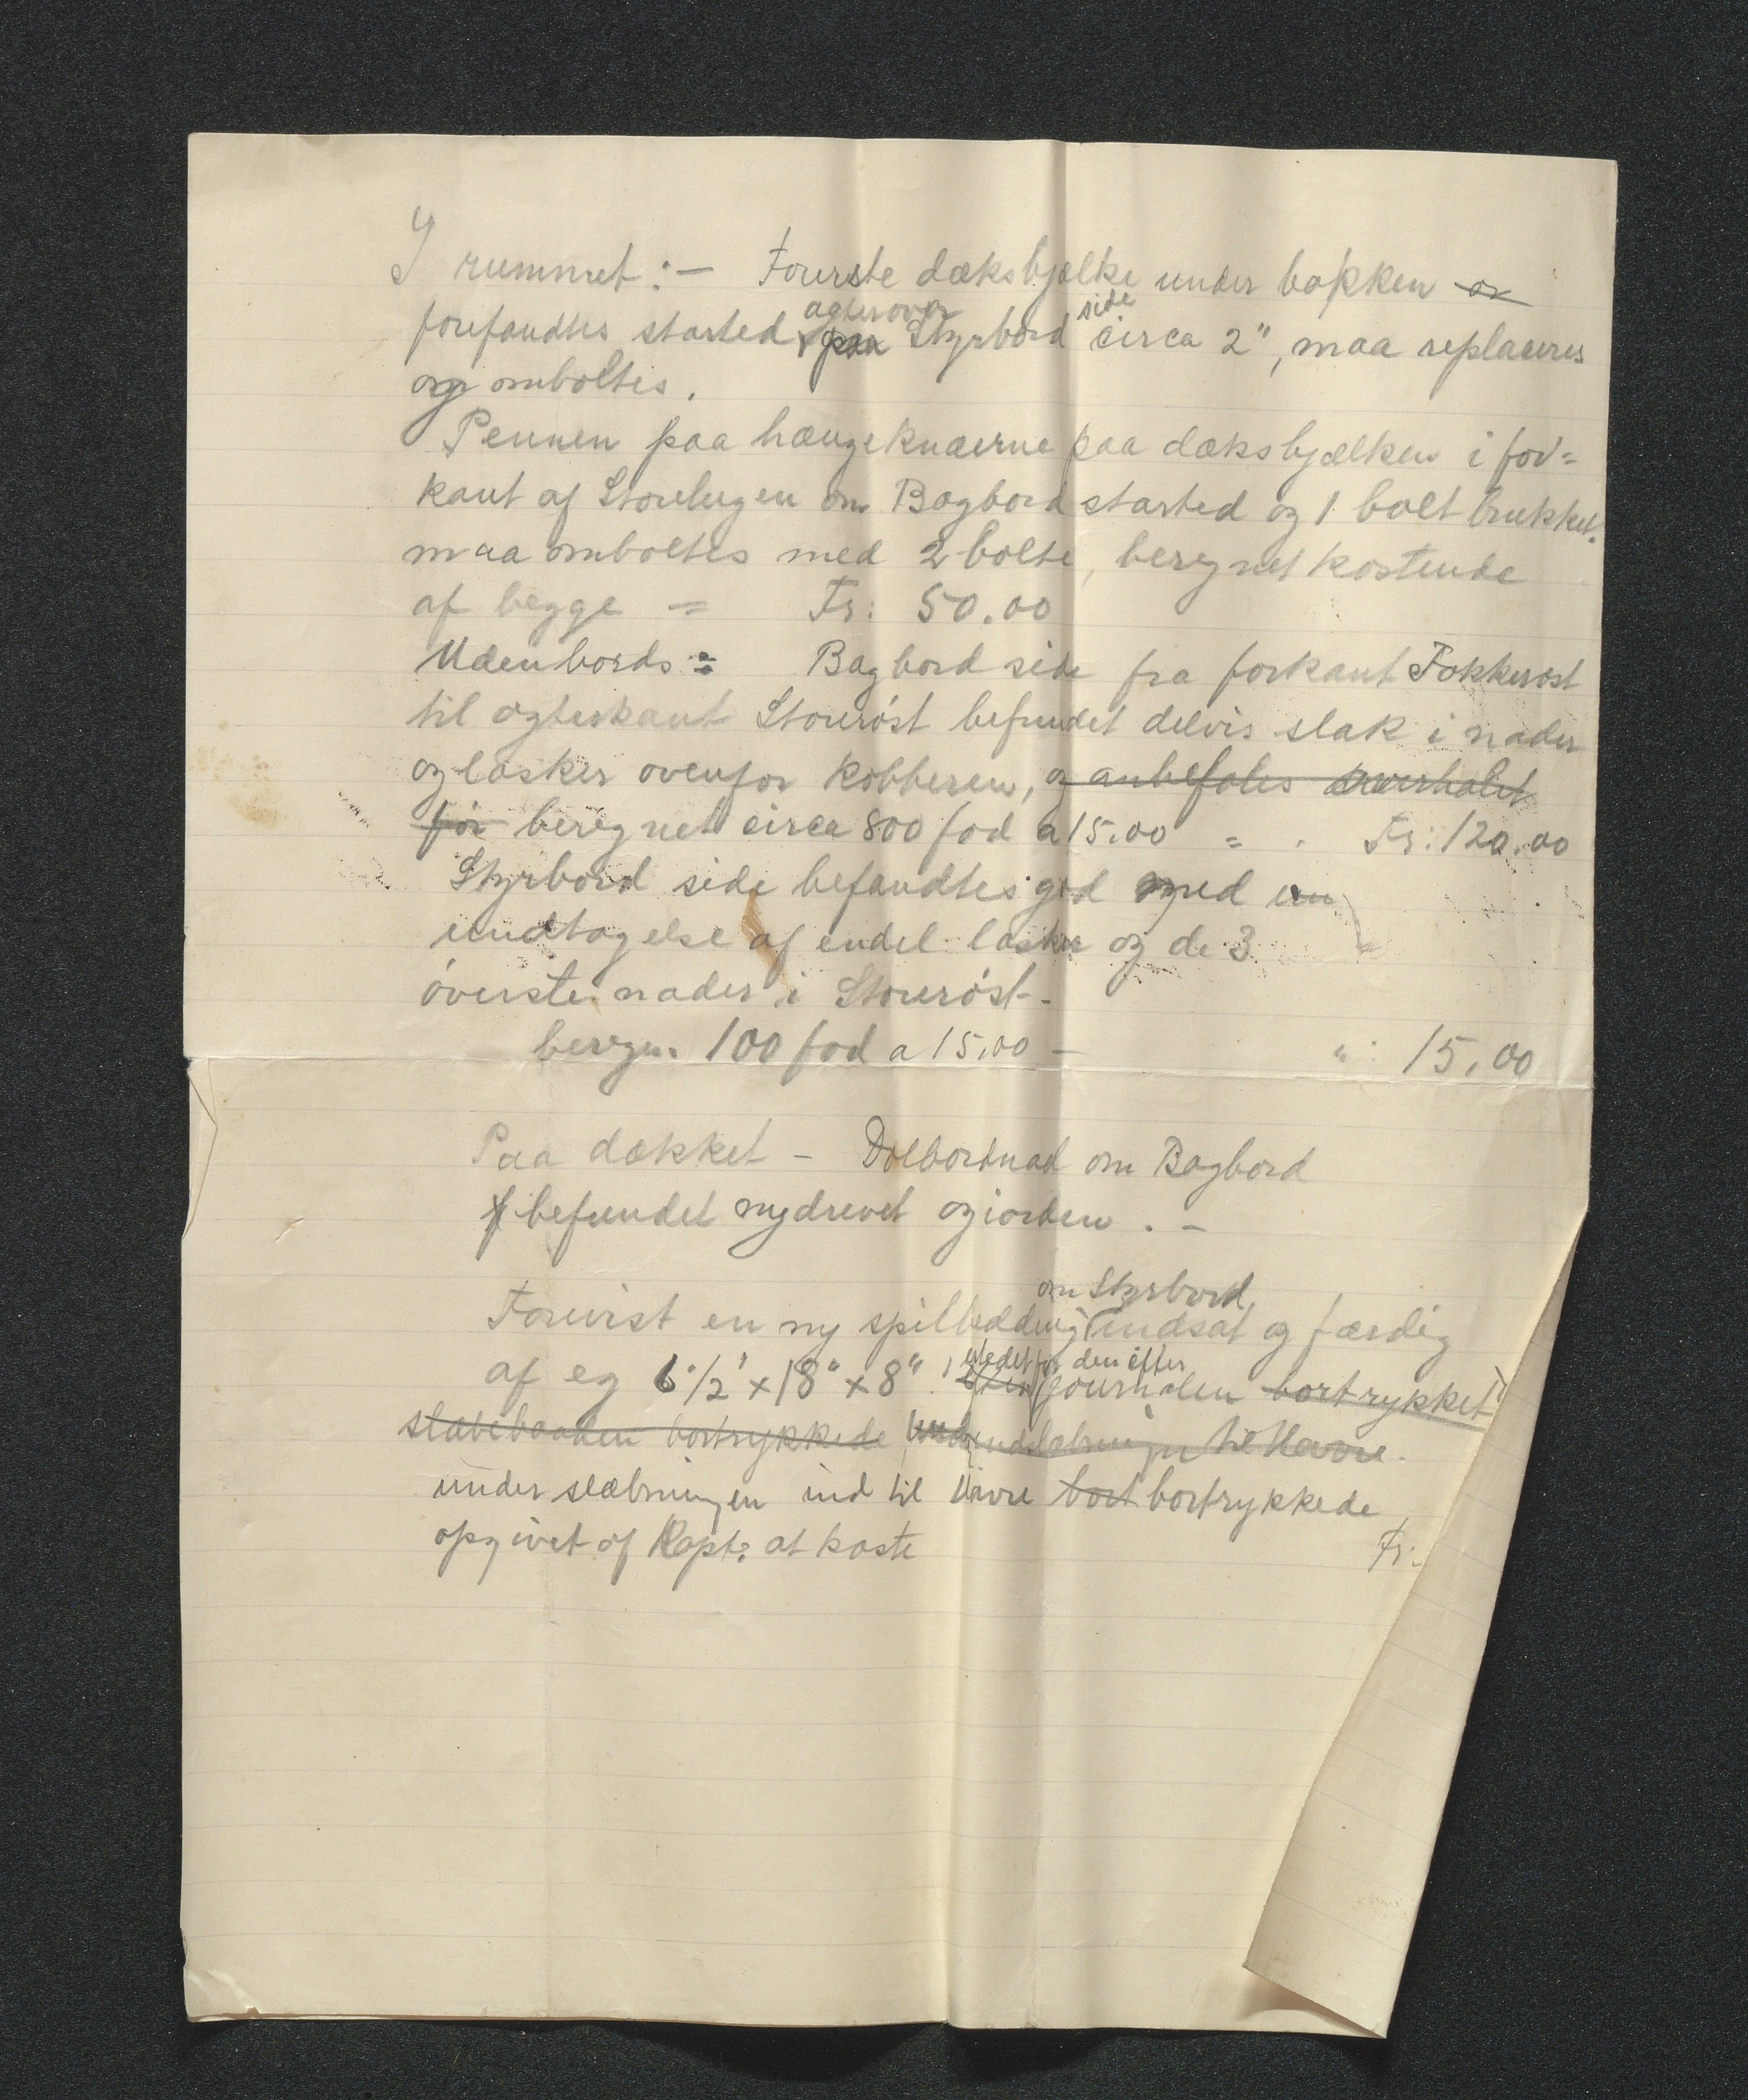 I rummet:- Forerste dæksbjælke under bakken er
agterover side
forefandtes started paa Styrbord circa 2", maa replaceres
og omboltes.
Pennen paa hængeknæerne paa dæksbjælken i for=
kant af Storelugen om Bagbord started og 1 bolt brukket.
maa omboltes med 2 bolte, beregnet kostende
af begge = Fr: 50.00
Udenbords = Bagbord side fra forkant Fokkerøst
til agterkant Storerøst befundet delvis slak i nader
og lasker ovenfor kobberen, og anbefales overhalet
før beregnet circa 800 fod a 15.00 = . Fr: 120.00
Styrbord side befandtes god med un
undtagelse af endel laske og de 3
øverste nader i Storerøst-
beregn. 100 fod a 15,00 - " : 15,00
Paa dækket - Dolbordnad om Bagbord
befundet nydrevet og iorden. -
om Styrbord
Forevist en ny spilbedding indsat og færdig
istedet for den efter
af eg 6 1/2' x 18" x 8" , efter journalen bortrykket
slæbebaaden bortrykkede under indslæbningen til Havre.
under slæbningen ind til Havre bort bortrykkede
opgivet af Kapt: at koste Fr: